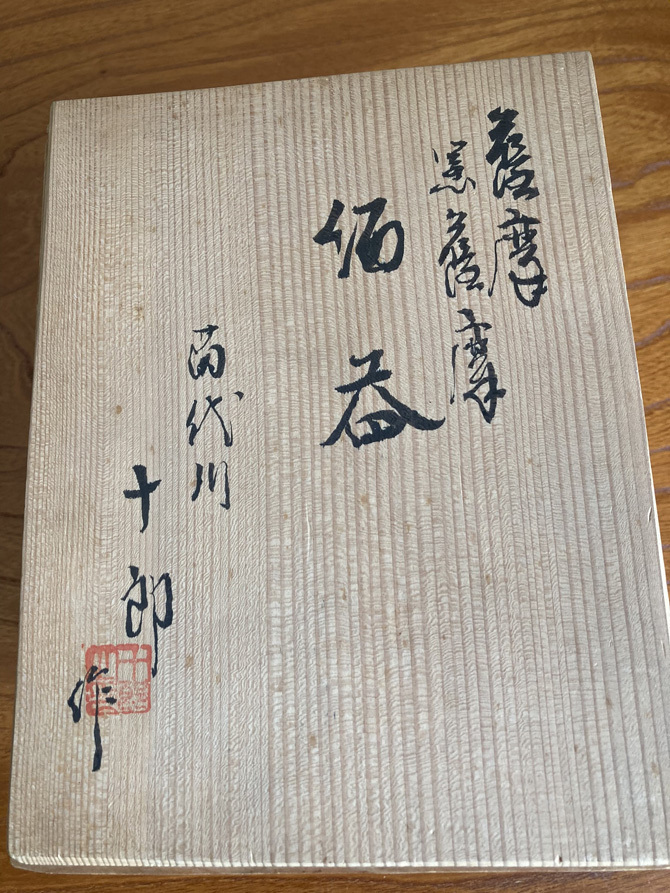 薩摩
黒薩摩
苗代川
十郎
作